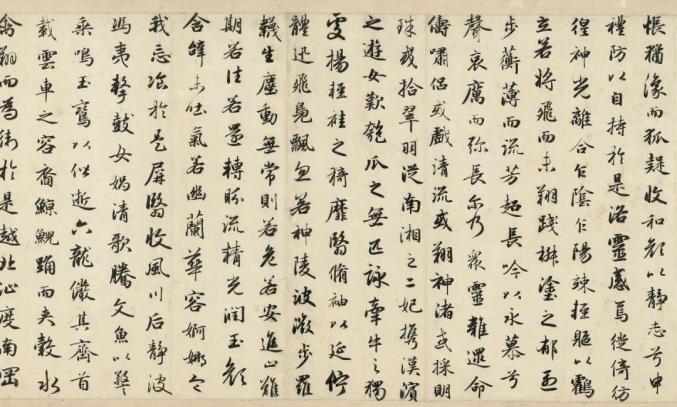 悵猶豫而狐疑收和顔以靜志兮申
禮防以自持於是洛靈感焉徙倚彷
徨神光離合乍陰乍陽竦輕軀以鶴
立若將飛而未翔踐椒塗之郁烈
步蘅薄而流芳超長吟以永慕兮
聲哀厲而彌長爾乃衆靈雜遝命
儔嘯侶或戲清流或翔神渚或採明
珠或拾翠羽從南湘之二妃攜漢濱
之遊女歎匏瓜之無匹詠牽牛之獨
處揚輕袿之猗靡翳脩袖以延佇
體迅飛鳧飄忽若神陵波微步羅
韈生塵動無常則若危若安進止難
期若往若還轉眄流精光潤玉顔
含辭未吐氣若幽蘭華容婀娜令
我忘湌於是屏翳收風川后靜波
馮夷擊鼓女媧清歌騰文魚以警
乘鳴玉鸞以偕逝六龍儼其齊首
載雲車之容裔鯨鯢踊而夾轂水
禽翔而為衛於是越北沚度南岡